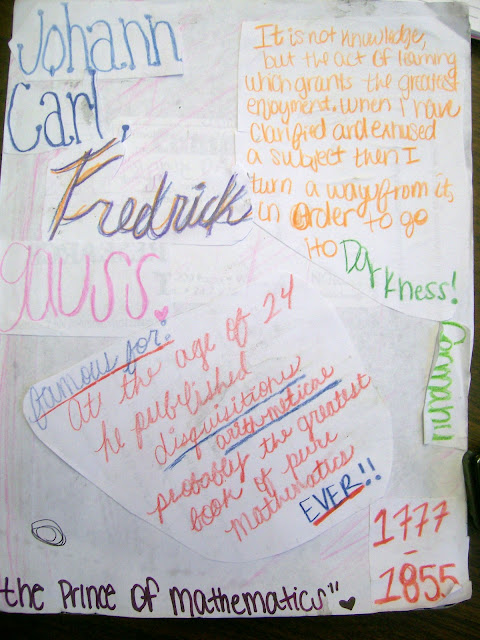 Johann
Carl,
Fredrick
gauss.
It is not knowledge,
but the act of learning
which grants the greatest
enjoyment. When I have
clarified and exhused
a subject then I
turn a way from it,
in order to go
ito Darkness!
Germany
famous for:
at the age of 24
he published
disquisitiones
arithmeticae
probably the greatest
book of pure
mathematics
EVER!!
1777
-
1855
the Prince of mathematics"